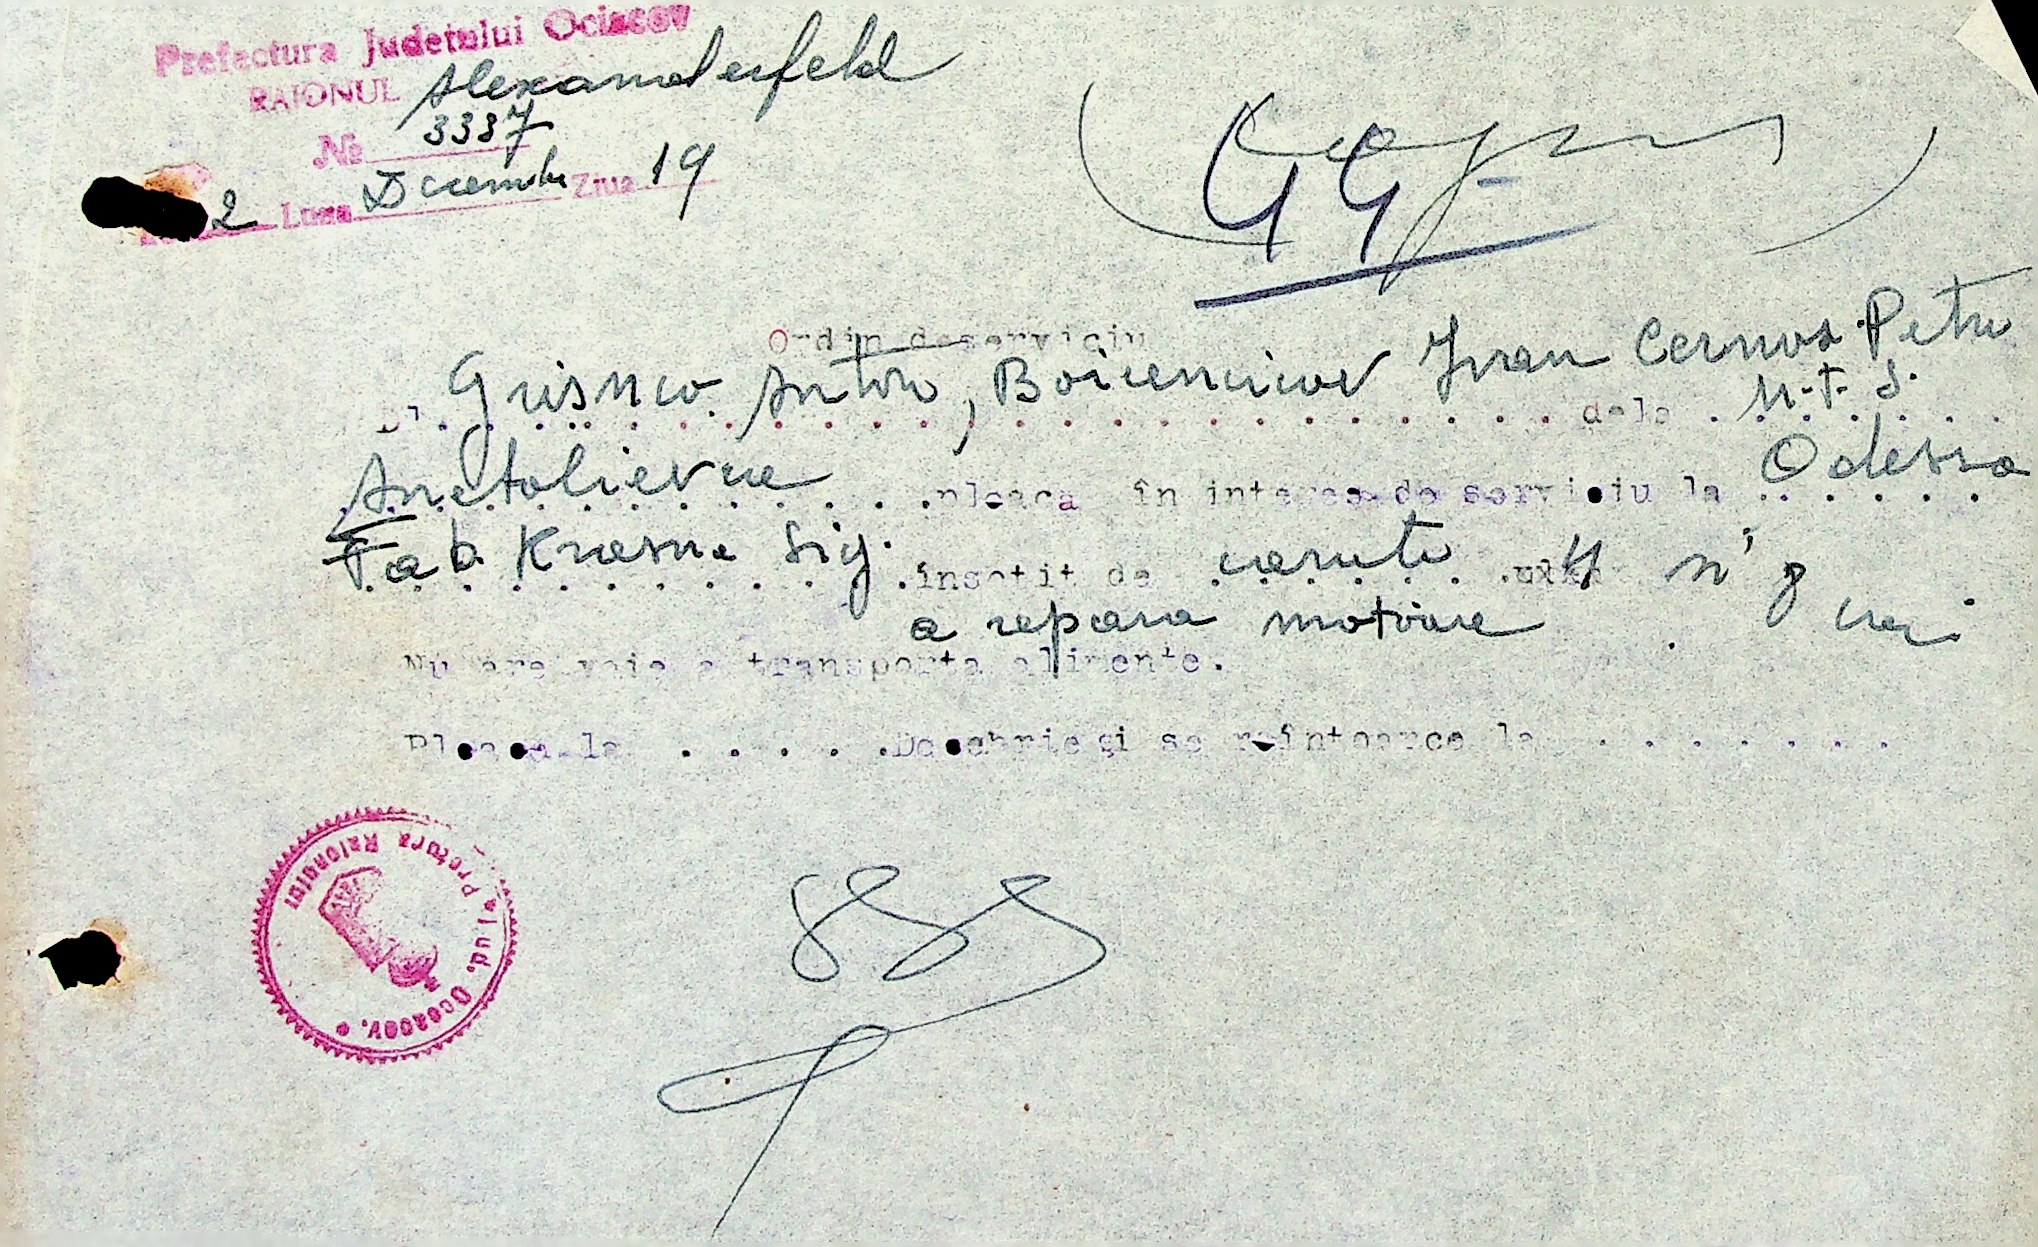 Prefectura Judetului Ociacov
RAIONUL Alexanderfeld
№ 3337
2 Luna Decembrie Ziua 19
44
Ordin deserviciu
Grisnco Anton, Boicenicov Ivan Cernov Petru
Dl. dela M.T.S.
Anatolievca pleaca în interes de serviciu la Odessa
Fab Krasna Sig. însotit de caruti 4
a repara motoare
Nu are voie a transporta alimente.
Pleaca la Decebrie și se reîntoarce la
Jud. Oceacov. Pretura Raionului